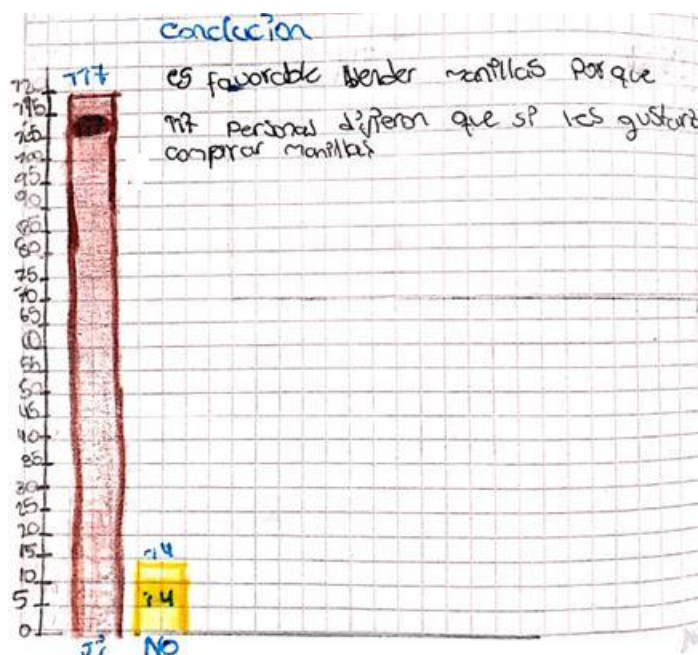 conclucion
117
es favorable Bender manillas porque
117 personas dijieron que si les gustaria
comprar manillas
115
105
100
95
90
85
80
75
70
65
60
55
50
45
40
35
30
25
20
15
10
5
0
14
14
Si NO